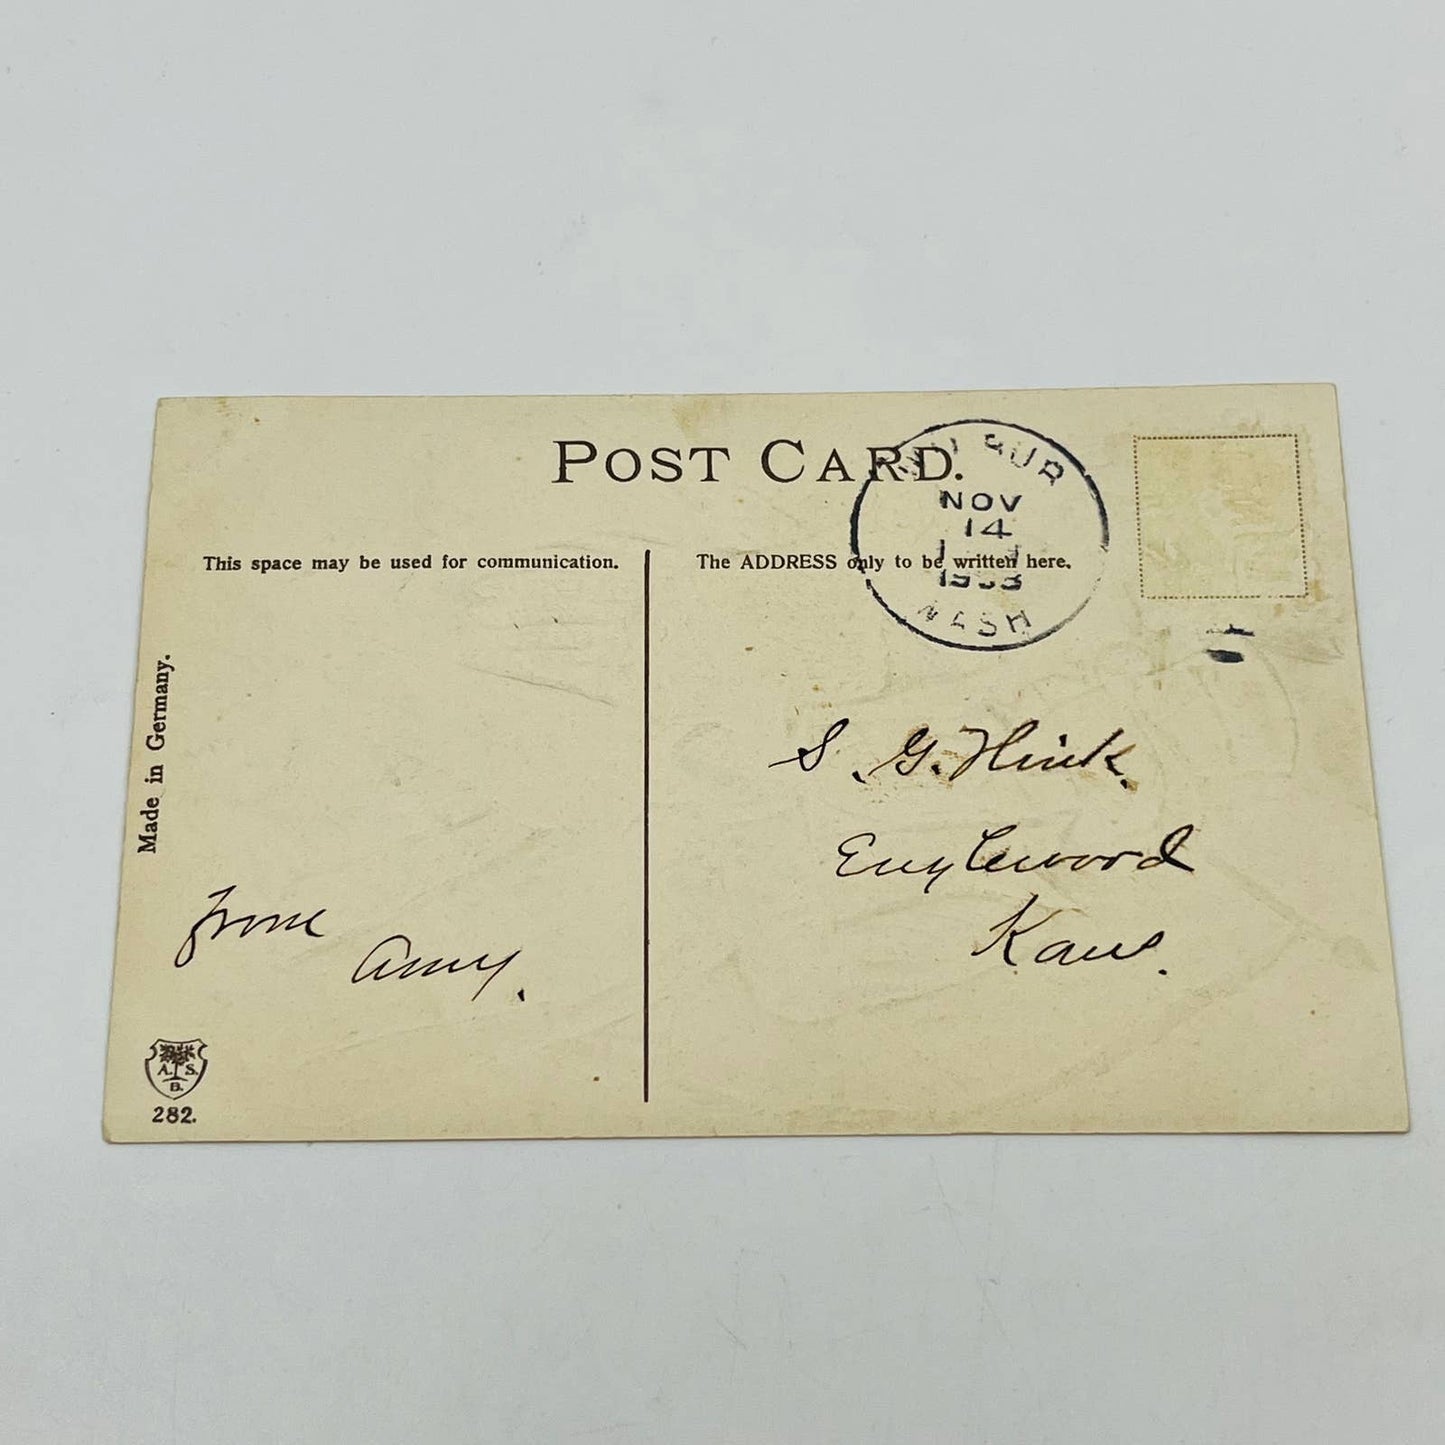 POST CARD.
WILBUR
NOV
14
WASH
This space may be used for communication.
The ADDRESS only to be written here.
Made in Germany.
S. G. Hink.
Englewood
Kans.
From
Amy.
A. S.
B.
282.